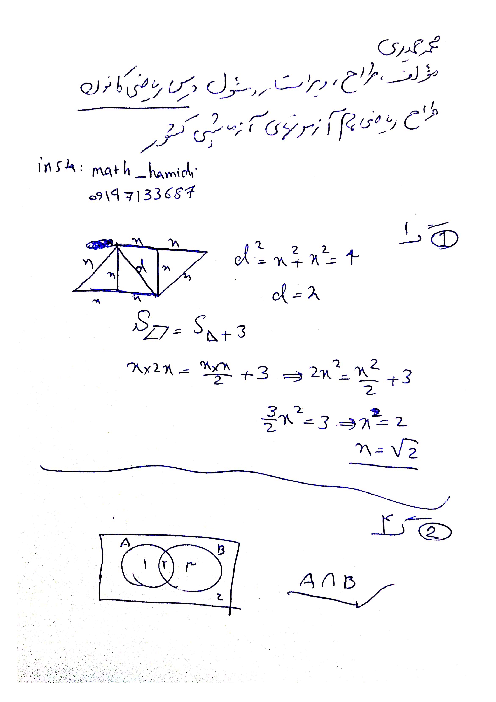 محمد حمیدی
مؤلف، طراح، ویراستار، مسئول درس ریاضی کانون
طراح ریاضی تمام آزمونهای آزمایشی کشور
insta: math_hamidi
09197133687
① گ ۱
n n
n n d n n
n n
d² = n² + n² = 4
d = 2
S▱ = S△ + 3
n×2n = n×n/2 + 3 ⇒ 2n² = n²/2 + 3
3/2 n² = 3 ⇒ n² = 2
n = √2
② گ ۴
A B
۱ ۲ ۳
2
A∩B